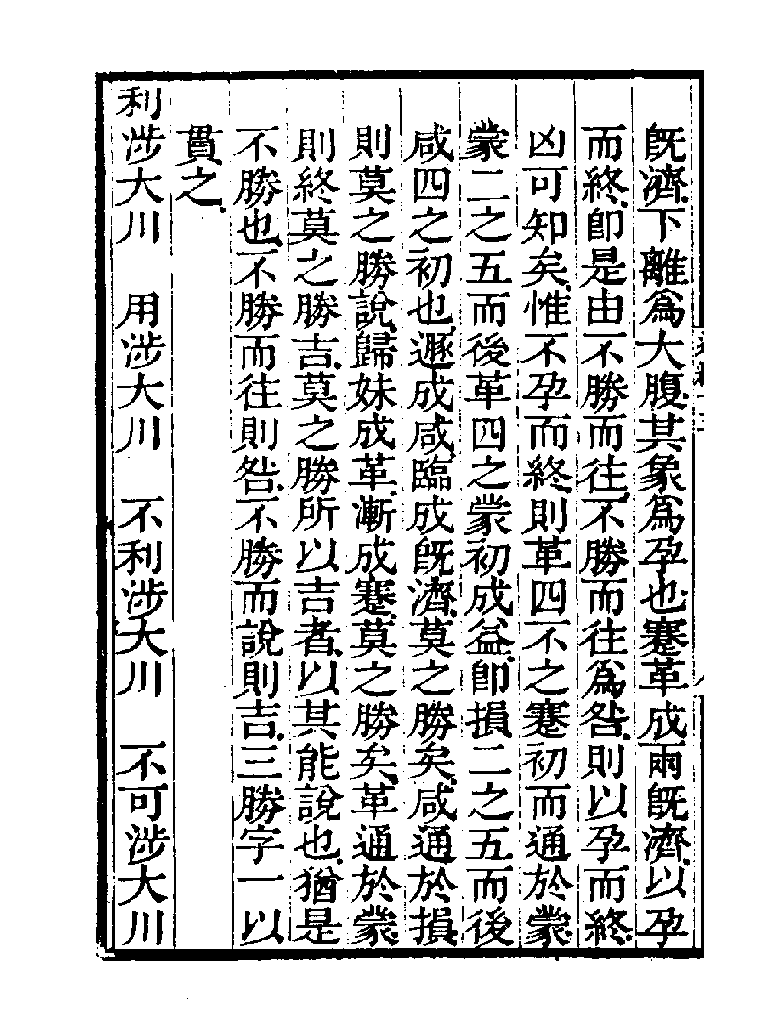 既濟下離爲大腹其象爲孕也蹇革成兩既濟以孕
而終即是由不勝而往不勝而往爲咎則以孕而終
凶可知矣惟不孕而終則革四不之蹇初而通於蒙
蒙二之五而後革四之蒙初成益即損二之五而後
咸四之初也遯成咸臨成既濟莫之勝矣咸通於損
則莫之勝說歸妹成革漸成蹇莫之勝矣革通於蒙
則終莫之勝吉莫之勝所以吉者以其能說也猶是
不勝也不勝而往則咎不勝而說則吉三勝字一以
貫之
利涉大川　用涉大川　不利涉大川　不可涉大川